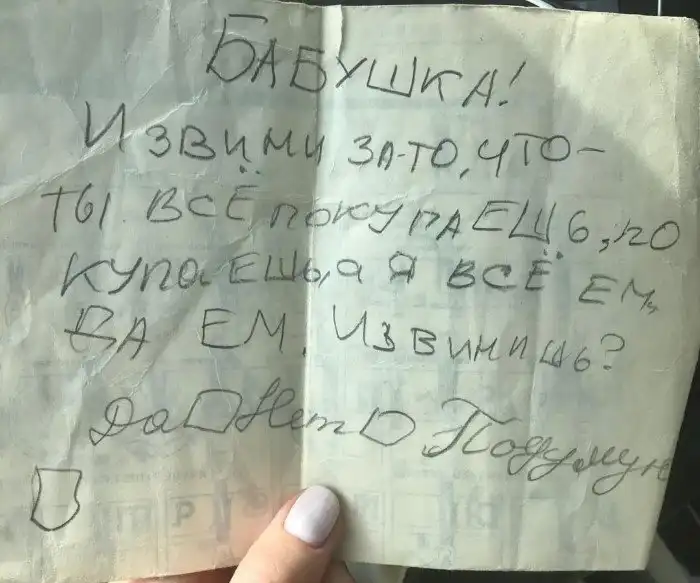 БАБУШКА!
ИЗВИМИ ЗА-ТО, ЧТО-
ТЫ ВСЁ ПОКУПАЕЩЬ, ПО
КУПАЕШЬ, А Я ВСЁ ЕМ,
ДА ЕМ. ИЗВИНИШЬ?
Да Нет Подумую